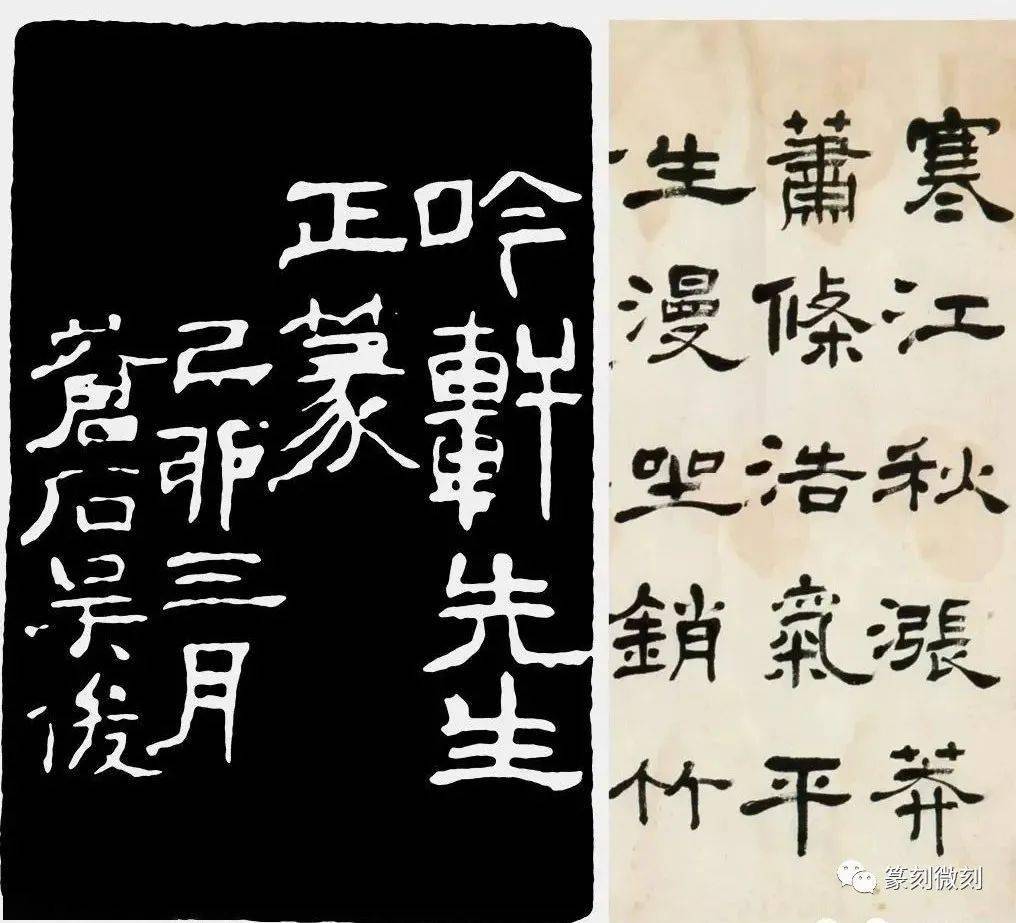 吟軒先生
正篆
己卯三月
蒼石吳俊
寒江秋漲莽
蕭條浩氣平
生漫坐銷竹
篆刻微刻